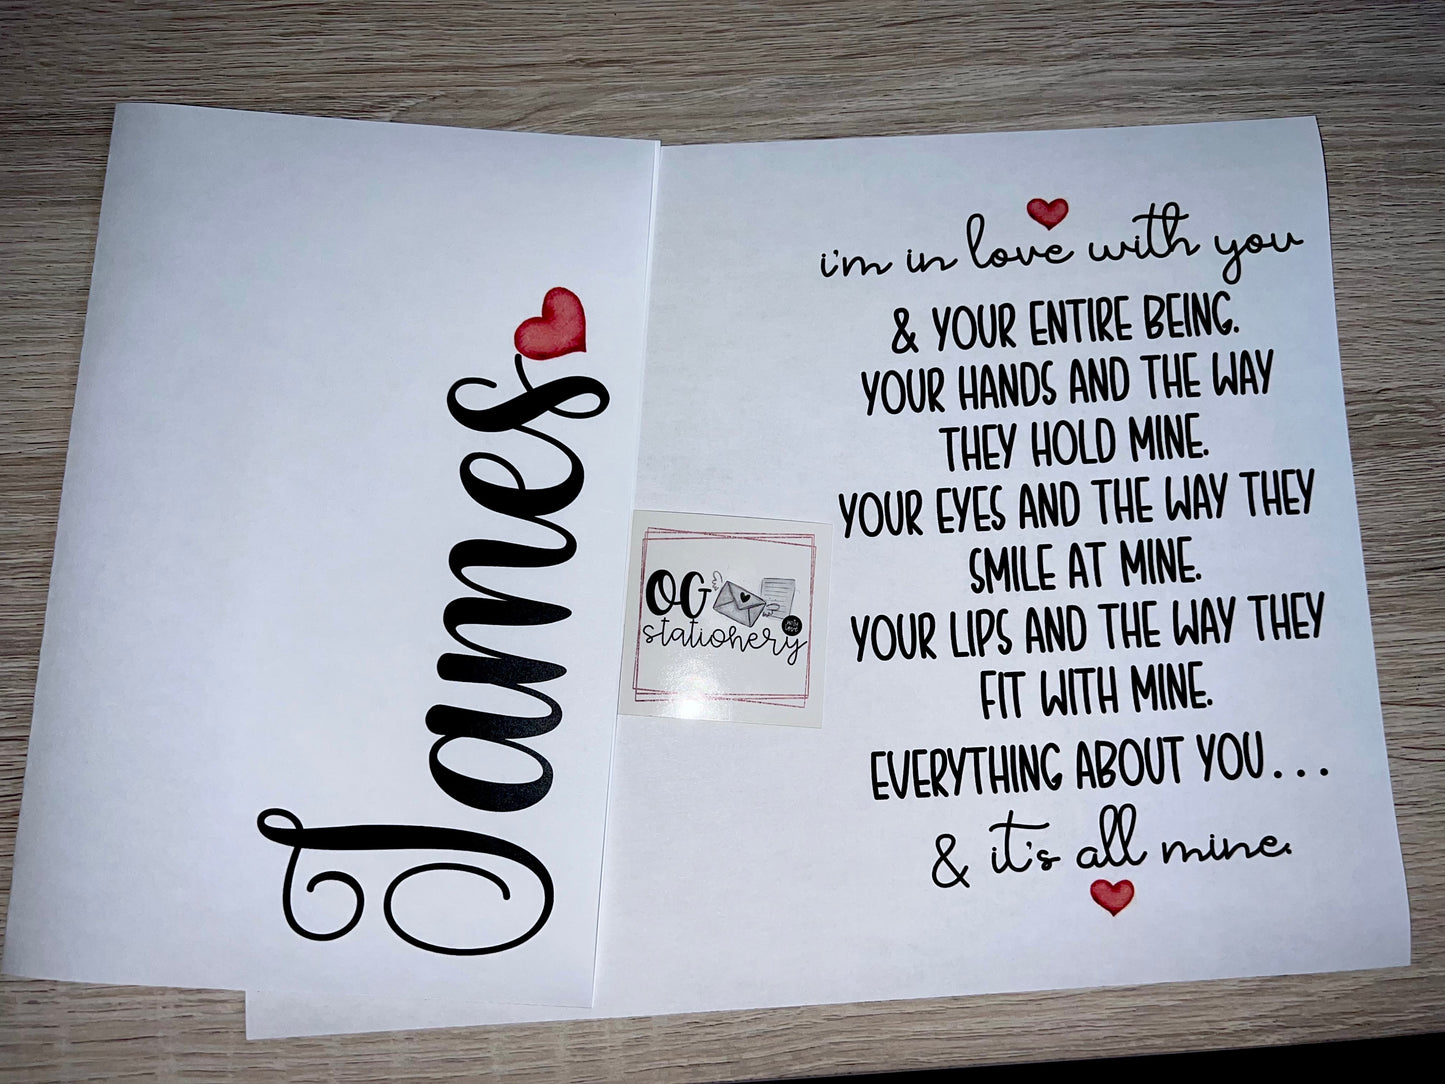 James
OG
stationery
with
love
i'm in love with you
& YOUR ENTIRE BEING.
YOUR HANDS AND THE WAY
THEY HOLD MINE.
YOUR EYES AND THE WAY THEY
SMILE AT MINE.
YOUR LIPS AND THE WAY THEY
FIT WITH MINE.
EVERYTHING ABOUT YOU...
& it's all mine.